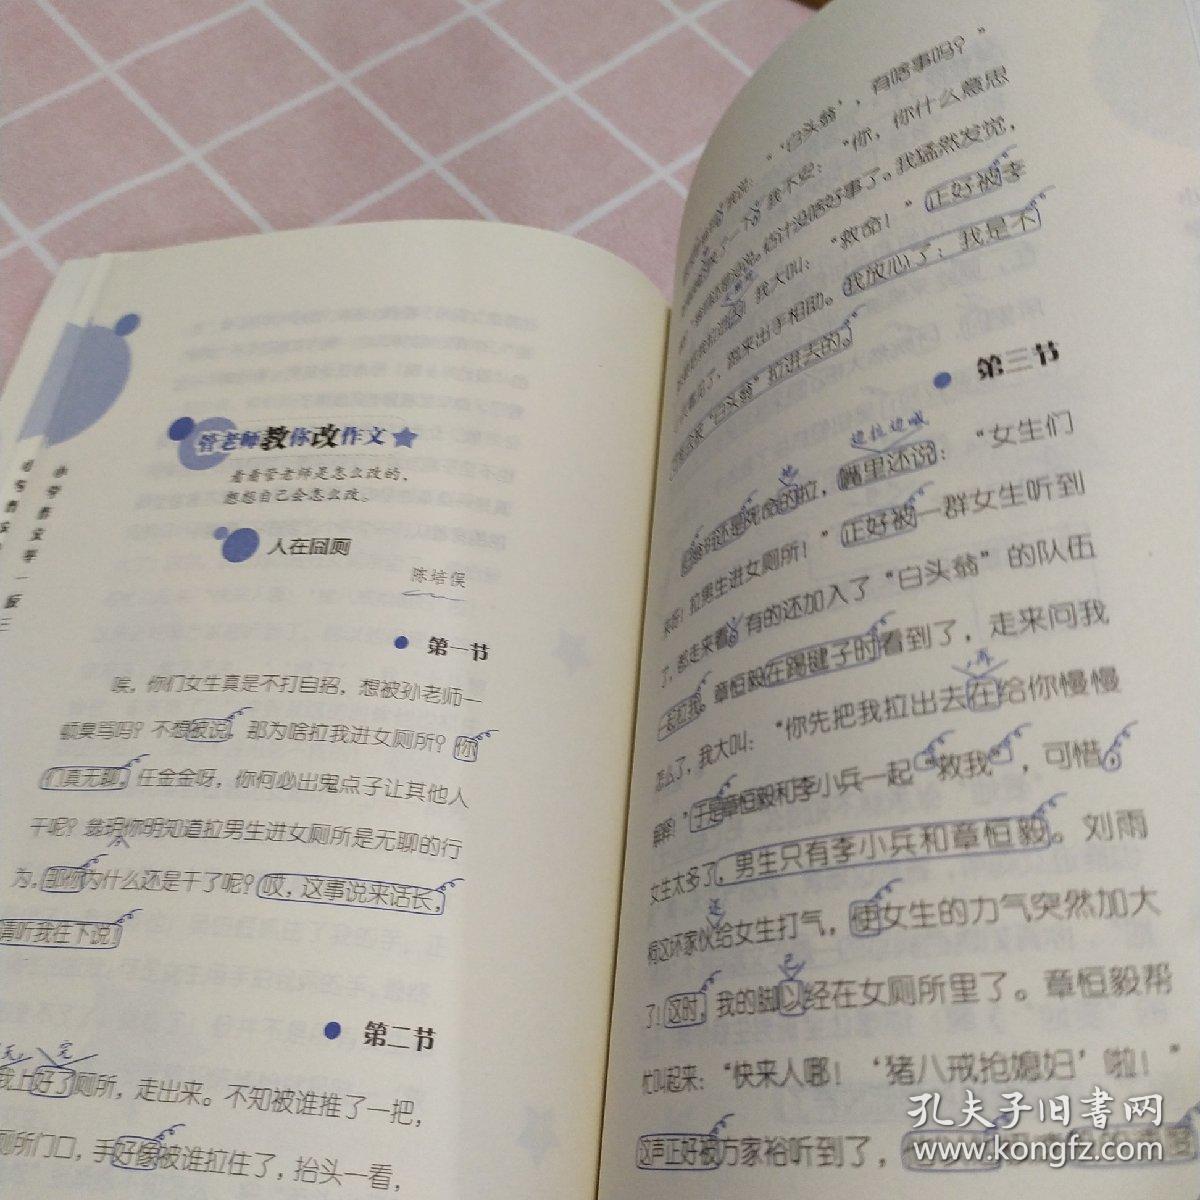 管老师教你改作文
看看管老师是怎么改的、
想想自己会怎么改。
人在囧厕
陈培保
第一节
唉，你们女生真是不打自招，想被孙老师一
顿臭骂吗？不想被说，那为啥拉我进女厕所？你
们真无聊。任金金呀，你何必出鬼点子让其他人
干呢？翁玥你明知道拉男生进女厕所是无聊的行
为，那你为什么还是干了呢？哎，这事说来话长，
请听我往下说！
第二节
我上好了厕所，走出来。不知被谁推了一把，
厕所门口，手好像被谁拉住了，抬头一看，
我说：“‘白头翁’，有啥事吗？”
了一个。我不安：“你，你什么意思
估计没啥好事了。我猛然发觉，
我大叫：“救命！”正好被李
跑来出手相助。我放心了：我是不
被“白头翁”拉进去的。
第三节
边拉边喊
还是死命的拉，嘴里还说：“女生们
地
来呀！拉男生进女厕所！”正好被一群女生听到
了，都走来看。有的还加入了“白头翁”的队伍
一起拉我。章恒毅在踢毽子时看到了，走来问我
怎么了，我大叫：“你先把我拉出去在给你慢慢
再
解释！”于是章恒毅和李小兵一起“救我”，可惜，
女生太多了，男生只有李小兵和章恒毅。刘雨
桐这坏家伙给女生打气，使女生的力气突然加大
还
了！这时，我的脚以经在女厕所里了。章恒毅帮
已
忙叫起来：“快来人哪！‘猪八戒抢媳妇’啦！”
这声正好被方家裕听到了，
孔夫子旧书网
www.kongfz.com